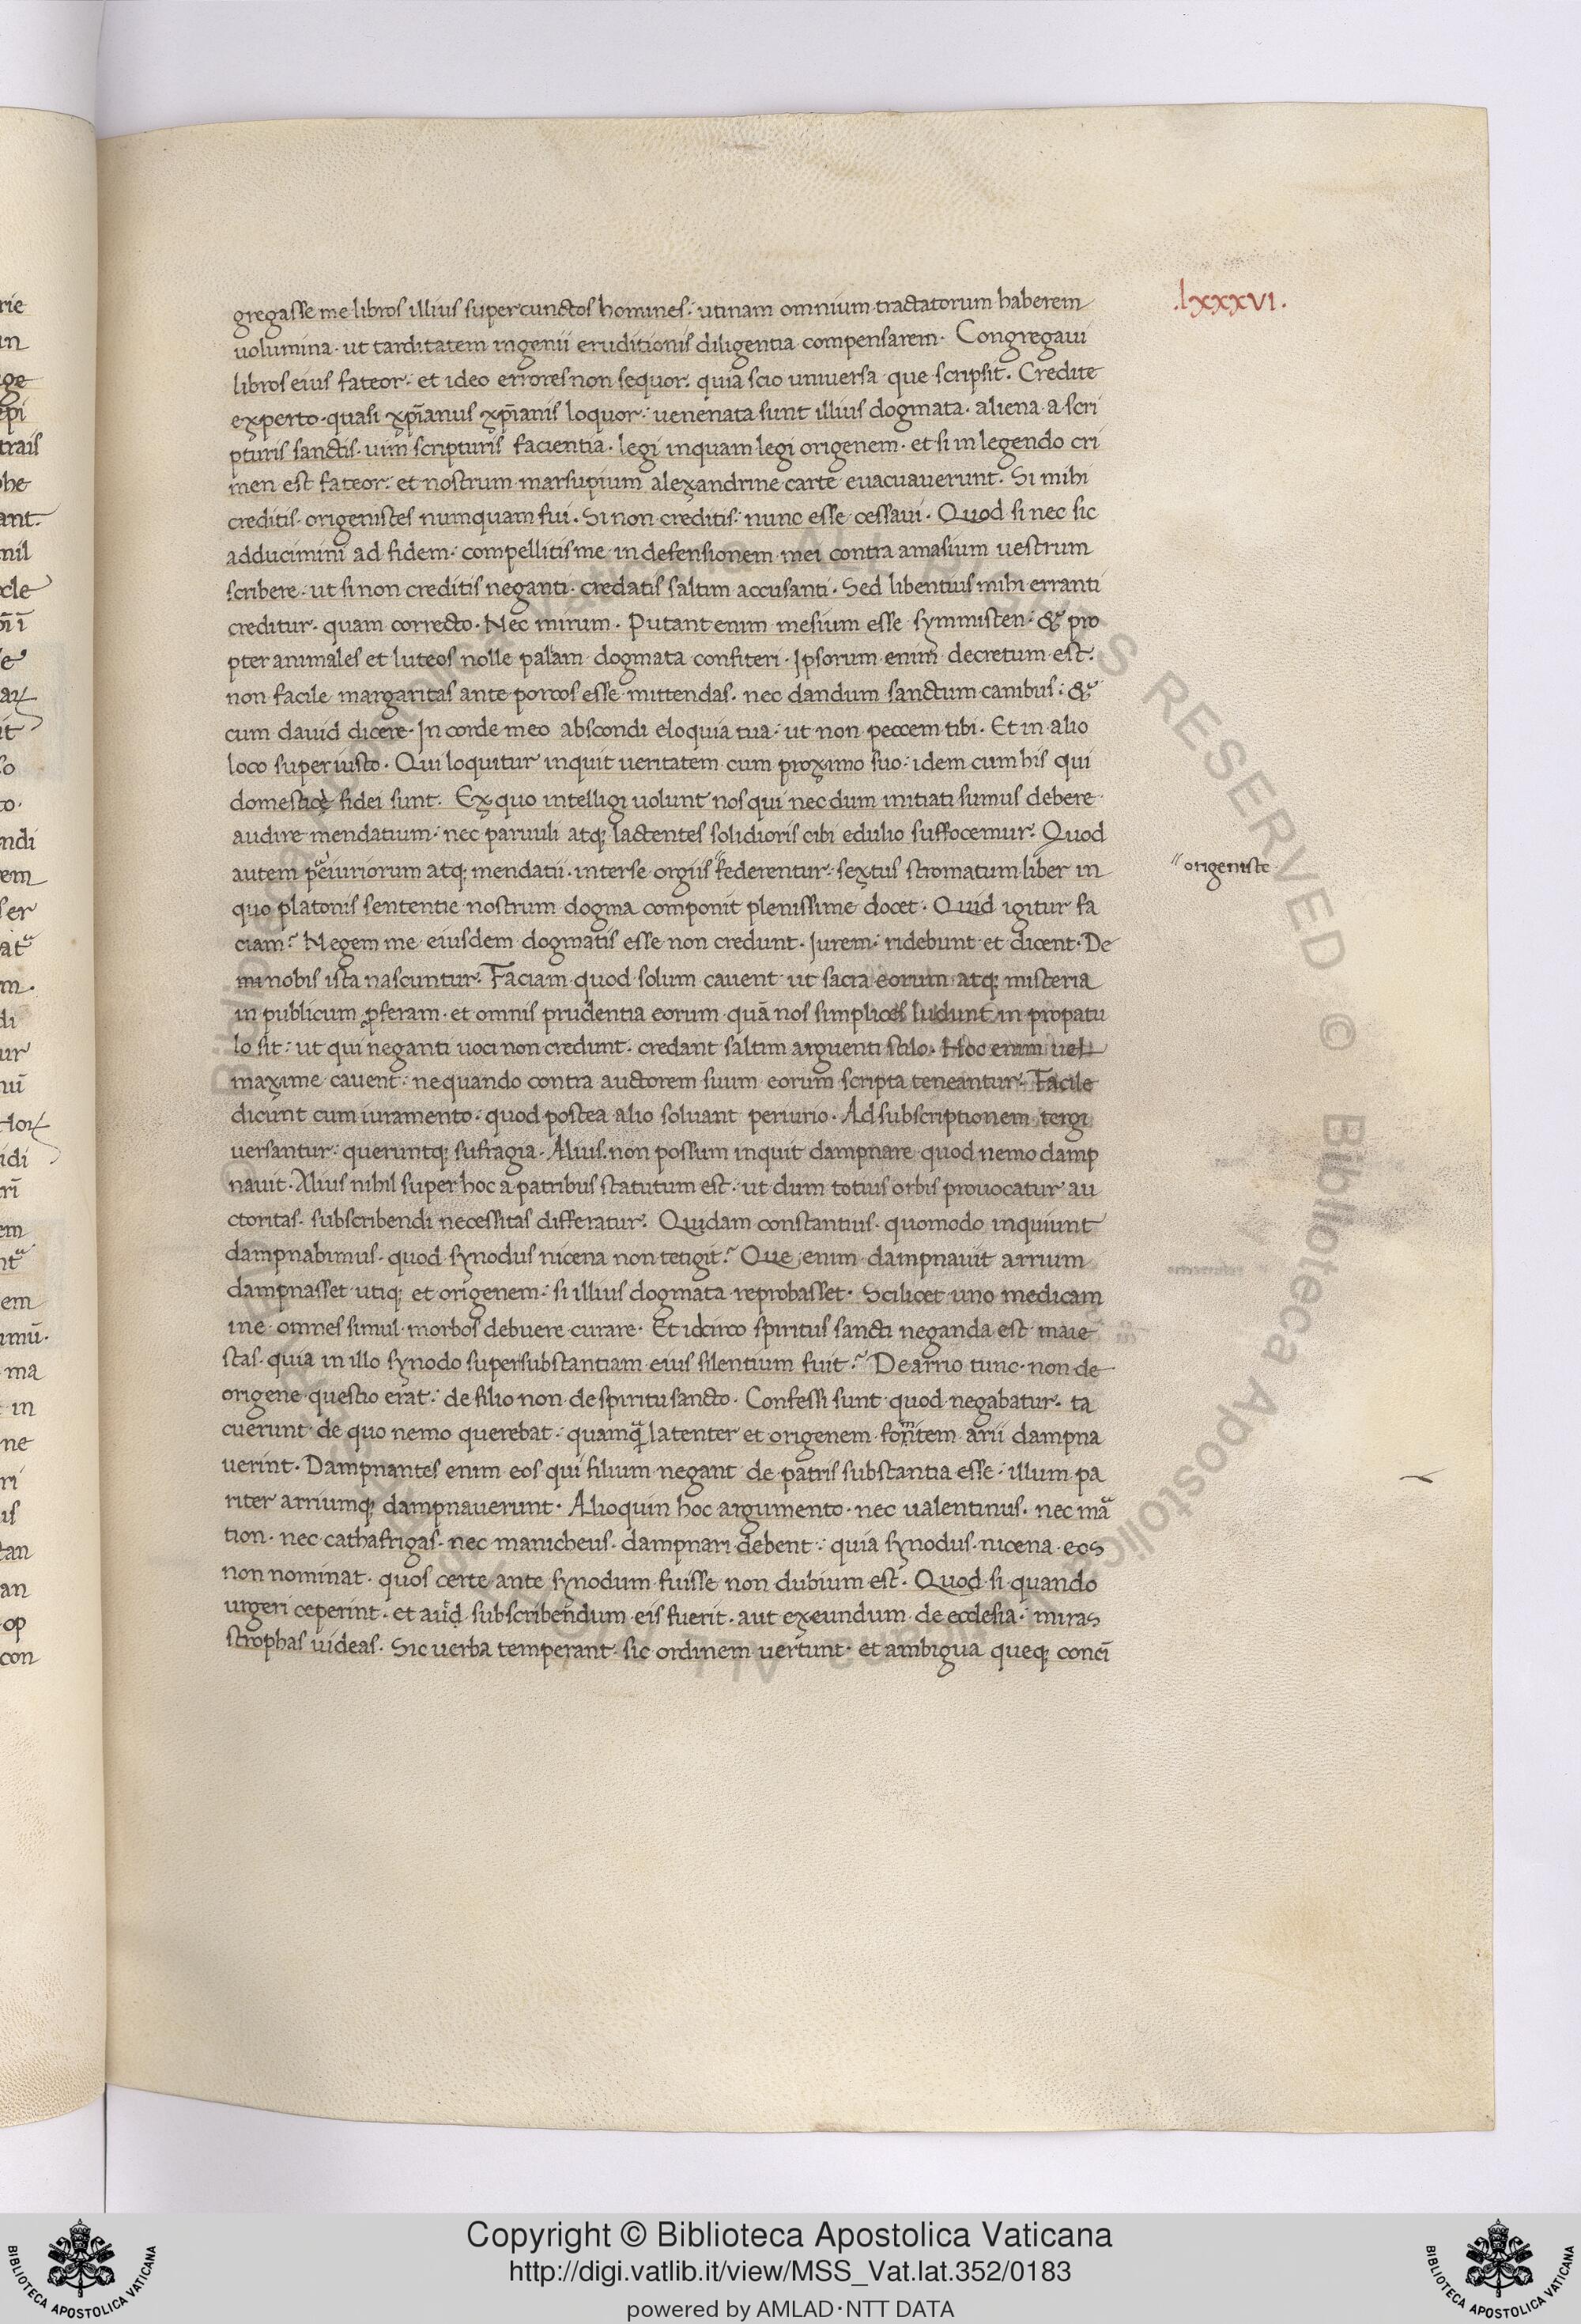 .lxxxvi.
gregasse me libros illius super cunctos homines: utinam omnium tractatorum haberem
uolumina. ut tarditatem ingenii eruditionis diligentia compensarem. Congregaui
libros eius fateor: et ideo errores non sequor. quia scio uniuersa que scripsit. Credite
experto. quasi xp̅ianus xp̅ianis loquor: uenenata sunt illius dogmata. aliena a scri
pturis sanctis. uim scripturis facientia. legi inquam legi origenem. et si in legendo cri
men est fateor: et nostrum marsupium alexandrine carte euacuauerunt. Si mihi
creditis. origenistes numquam fui. Si non creditis: nunc esse cessaui. Quod si nec sic
adducimini ad fidem: compellitis me in defensionem mei contra amasium uestrum
scribere: ut si non creditis neganti. credatis saltim accusanti. Sed libentius mihi erranti
creditur. quam correcto. Nec mirum. Putant enim me sium esse symmisten: & pro
pter animales et luteos nolle palam dogmata confiteri. Ipsorum enim decretum est.
non facile margaritas ante porcos esse mittendas. nec dandum sanctum canibus: &
cum dauid dicere. In corde meo abscondi eloquia tua: ut non peccem tibi. Et in alio
loco super iusto. Qui loquitur inquit ueritatem cum proximo suo: idem cum his qui
domesticę fidei sunt. Ex quo intelligi uolunt nos qui nec dum initiati sumus debere
audire mendatium: nec paruuli atq; lactentes solidioris cibi edulio suffocemur. Quod
autem peiuriorum atq; mendatii. inter se orgiis "federentur. sextus stromatum liber in
"origeniste
quo platonis sententie nostrum dogma componit plenissime docet. Quid igitur fa
ciam? Negem me eiusdem dogmatis esse non credunt. Iurem: ridebunt et dicent. De
mi nobis ista nascuntur. Faciam quod solum cauent ut sacra eorum atq; misteria
in publicum ꝓferam. et omnis prudentia eorum quā nos simplices ludunt in propatu
lo sit: ut qui neganti uoci non credunt. credant saltim arguenti stilo. Hoc enim uel
maxime cauent: ne quando contra auctorem suum eorum scripta teneantur. Facile
dicunt cum iuramento. quod postea alio soluant periurio. Ad subscriptionem tergi
uersantur: queruntq; sufragia. Alius. non possum inquit dampnare quod nemo damp
nauit. Alius nihil super hoc a patribus statutum est: ut dum totius orbis prouocatur au
ctoritas. subscribendi necessitas differatur. Quidam constantius. quomodo inquiunt
dampnabimus. quod synodus nicena non tetigit? Que enim dampnauit arrium
dampnasset utiq; et origenem: si illius dogmata reprobasset. Scilicet uno medicam
ine omnes simul morbos debuere curare. Et idcirco spiritus sancti neganda est maie
stas. quia in illo synodo super substantiam eius silentium fuit? De arrio tunc. non de
origene questio erat: de filio non de spiritu sancto. Confessi sunt quod negabatur. ta
cuerunt de quo nemo querebat: quamq̄ latenter et origenem fontem arii dampna
uerint. Dampnantes enim eos qui filium negant de patris substantia esse: illum pa
riter arriumq; dampnauerunt. Alioquin hoc argumento. nec ualentinus. nec ma
tion. nec cathafrigas. nec manicheus. dampnari debent: quia synodus nicena eos
non nominat. quos certe ante synodum fuisse non dubium est. Quod si quando
urgeri ceperint. et aud subscribendum eis fuerit. aut exeundum de ecclesia: miras
strophas uideas. Sic uerba temperant. sic ordinem uertunt. et ambigua queq; conci̅
Copyright © Biblioteca Apostolica Vaticana
http://digi.vatlib.it/view/MSS_Vat.lat.352/0183
powered by AMLAD·NTT DATA